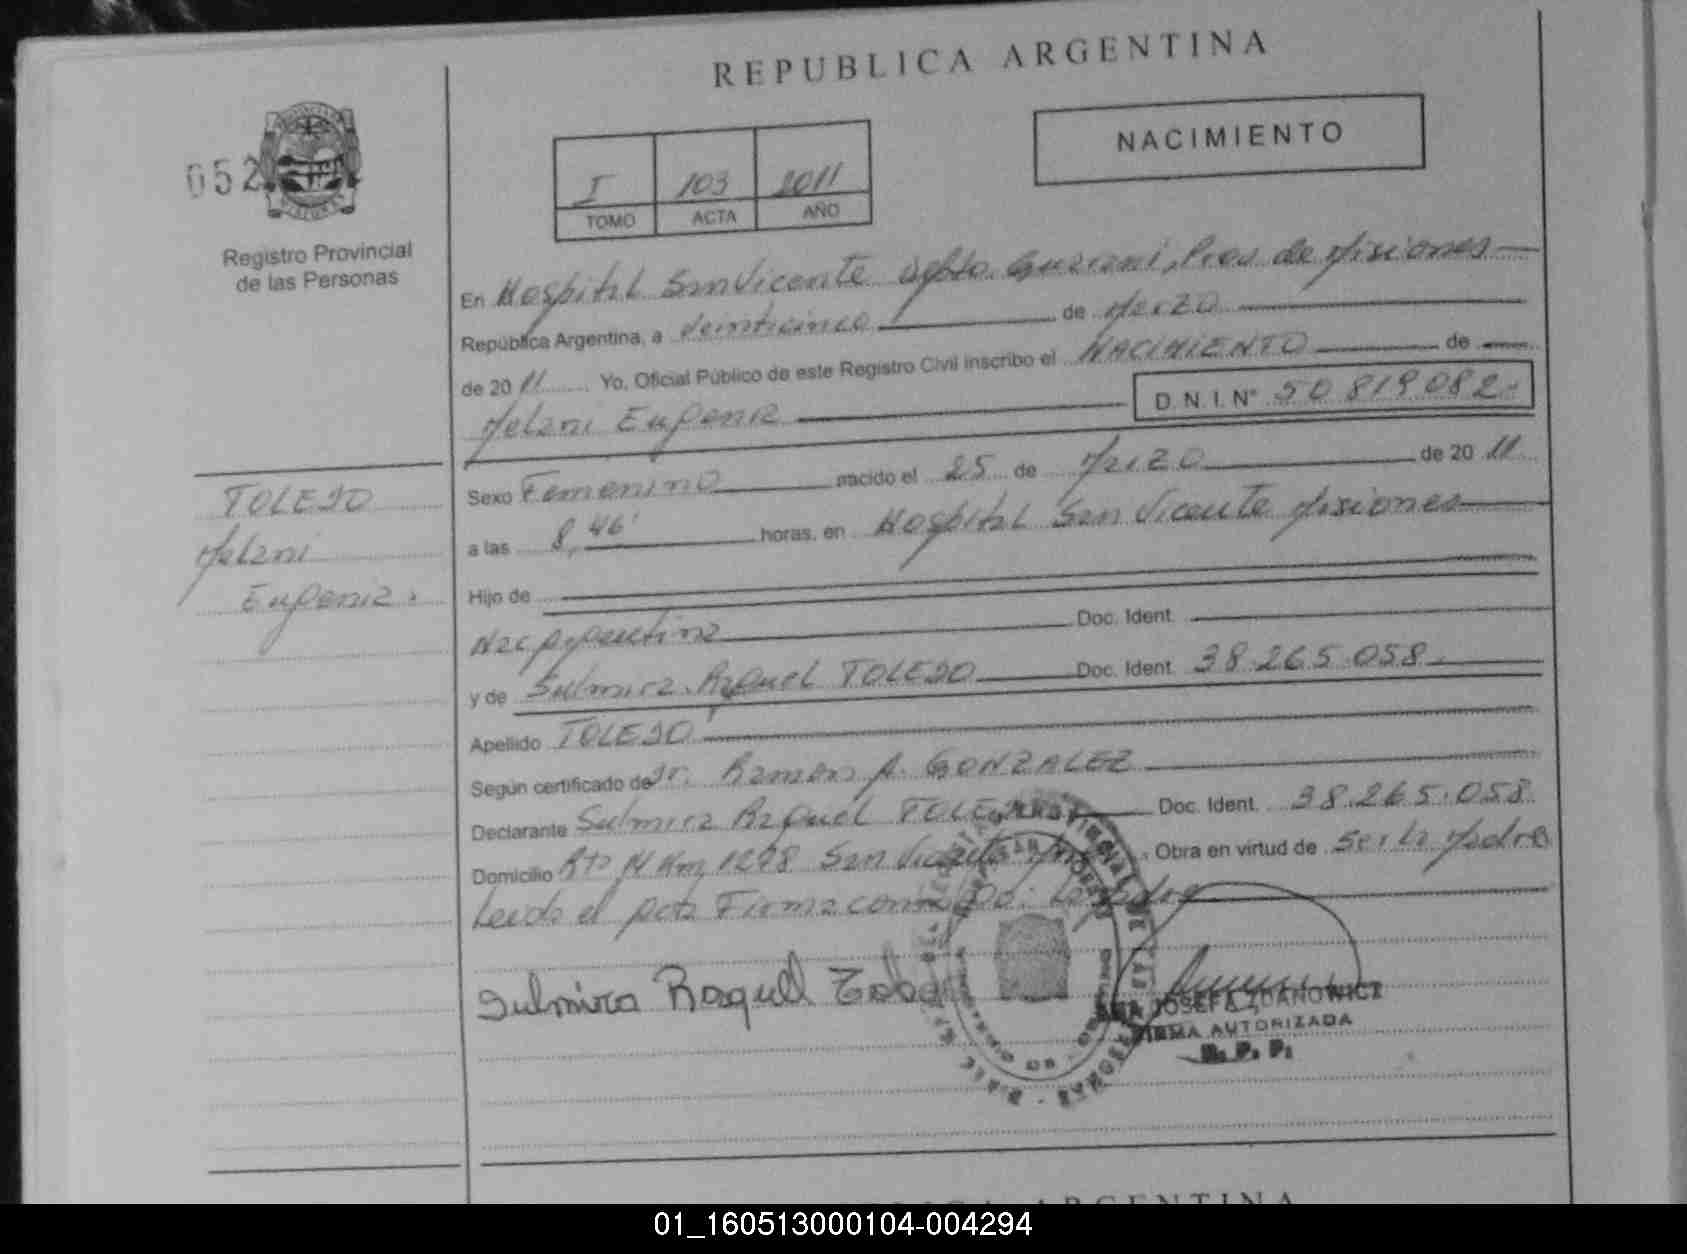 REPUBLICA ARGENTINA
NACIMIENTO
I 103 2011
TOMO ACTA AÑO
652
Registro Provincial
de las Personas
TOLEDO
Melani
Eugenia.
En Hospital San Vicente Depto. Guarani, Prov. de Misiones
República Argentina, a veinticinco de Marzo
de 2011 Yo, Oficial Público de este Registro Civil inscribo el NACIMIENTO de
Melani Eugenia D. N. I. N° 50.819.082.-
Sexo Femenino nacido el 25 de Marzo de 2011
a las 8,46' horas, en Hospital San Vicente Misiones
Hijo de
Nac Argentina Doc. Ident.
y de Sulmira Raquel TOLEDO Doc. Ident. 38.265.058.
Apellido TOLEDO
Según certificado de Dr. Ramon A. GONZALEZ
Declarante Sulmira Raquel TOLEDO Doc. Ident. 38.265.058
Domicilio Rta 14 Km 1278 San Vicente Obra en virtud de Ser la Madre
Leida el Acta Firma conmigo: La Madre
Sulmira Raquell
JOSEFA ZDANOWICZ
FIRMA AUTORIZADA
R. P. P.
ARGENTINA
01_160513000104-004294